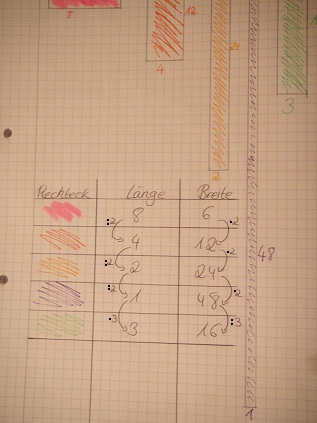 8
12
4
24
2
3
Rechteck Länge Breite
:2 8 6 ·2
:2 4 12 ·2
:2 2 24 ·2
·3 1 48 :3
3 16
48
1